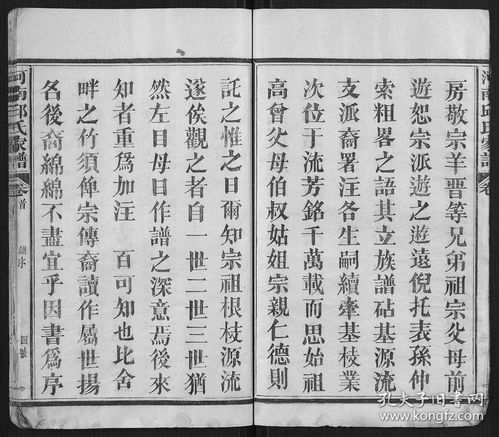 房敬宗羊晋等兄弟祖宗父母前
遊恕宗派遊之遊遠倪托表孫仲
索粗畧之語其立族譜砧基源流
支派裔署注各生嗣續牽基枝業
次位于流芳銘千萬載而思始祖
高曾父母伯叔姑姐宗親仁德則
託之惟之日爾知宗祖根枝源流
遂俟觀之者則自一世二世三世猶
然左目母曰作譜之深意焉後來
知者重爲加注 百可知也比舍
畔之竹須俾宗傳裔讀作屬世揚
名後裔綿綿不盡宜乎因書爲序
河南邱氏家譜
卷首
譜序
四號
孔夫子旧书网
www.kongfz.com